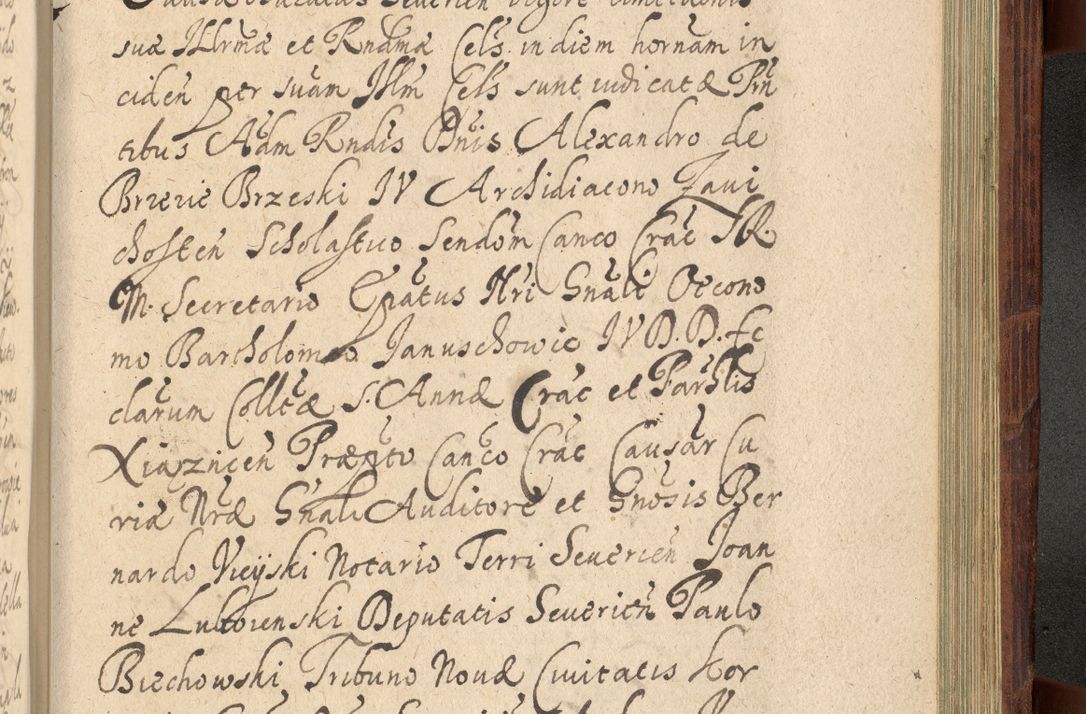 suæ Illrmæ et Rndmæ Cels. in diem hornam in
ciden per suam Illm Cels sunt iudicatæ Prn
tibus Adm Rndis Dnis Alexandro de
Brzezie Brzeski IV Archidiacono Zavi
chosten Scholastico Sendom Canco Crac S R.
M. Secretario Epatus Nri Gnali Oecono
mo Bartholomeo Januschowic IVD. D. Ec
clarum Colltæ S. Annæ Crac et Parhlis
Xiąznicen Præpto Canco Crac Causar Cu
riæ Nræ Gnali Auditore et Gnosis Ber
nardo Vieyski Notario Terri Severien Joan
ne Lutorenski Deputatis Severien Paulo
Biechowski Tribuno Novæ Civitatis Kor